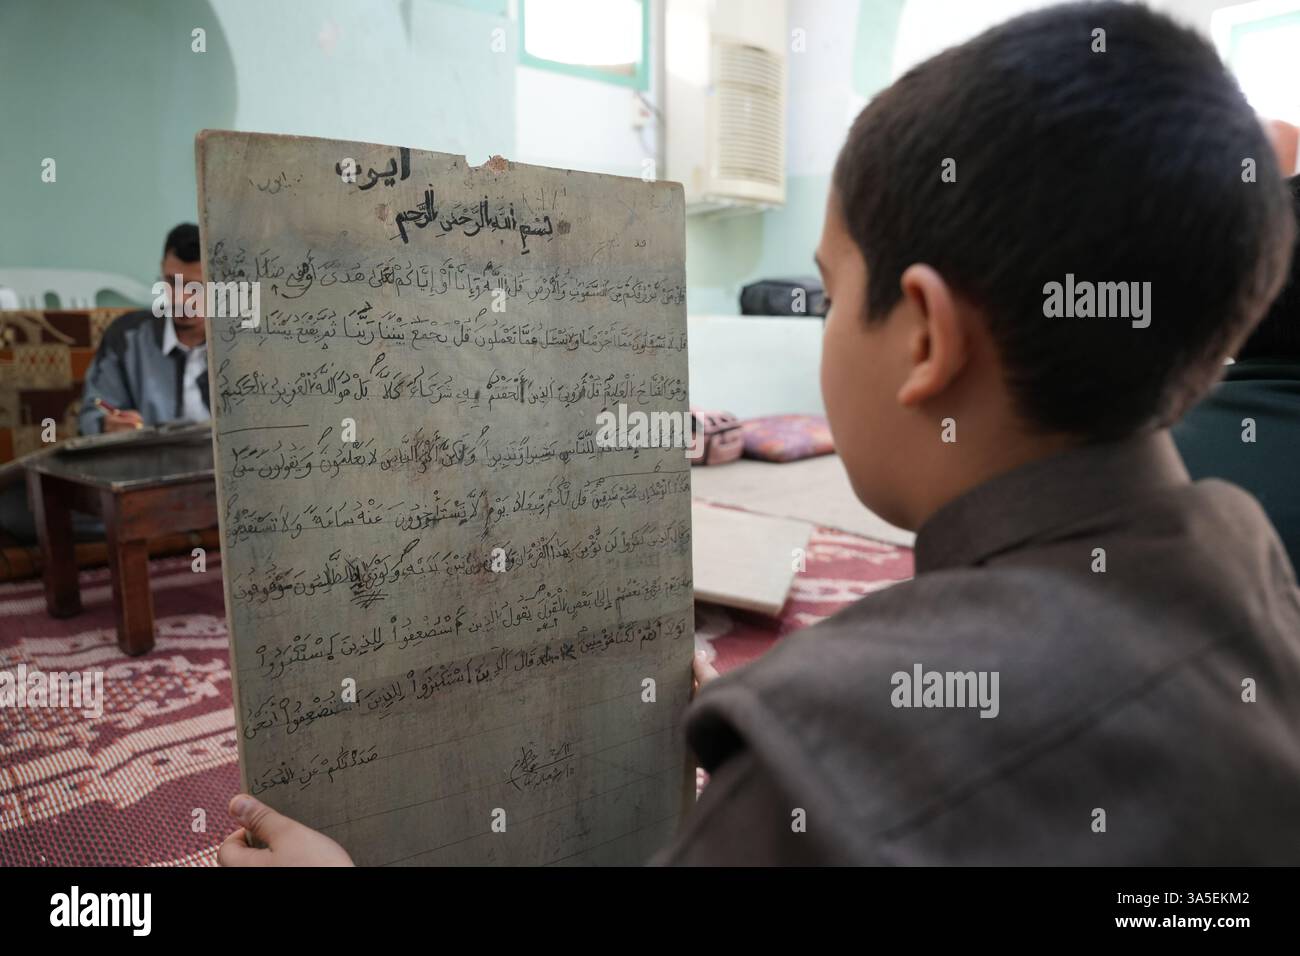 أيوب
أيوب
بِسْمِ اللَّهِ الرَّحْمَنِ الرَّحِيمِ
قُلْ مَنْ يَرْزُقُكُمْ مِنَ السَّمَٰوَٰتِ وَالْأَرْضِ قُلِ اللَّهُ وَإِنَّا أَوْ إِيَّاكُمْ لَعَلَىٰ هُدًى أَوْ فِي ضَلَٰلٍ مُبِينٍ
قُلْ لَا تُسْـَٔلُونَ عَمَّا أَجْرَمْنَا وَلَا نُسْـَٔلُ عَمَّا تَعْمَلُونَ قُلْ يَجْمَعُ بَيْنَنَا رَبُّنَا ثُمَّ يَفْتَحُ بَيْنَنَا بِالْحَقِّ
وَهُوَ الْفَتَّاحُ الْعَلِيمُ قُلْ أَرُونِيَ الَّذِينَ أَلْحَقْتُمْ بِهِ شُرَكَاءَ كَلَّا بَلْ هُوَ اللَّهُ الْعَزِيزُ الْحَكِيمُ
كَافَّةً لِلنَّاسِ بَشِيرًا وَنَذِيرًا وَلَٰكِنَّ أَكْثَرَ النَّاسِ لَا يَعْلَمُونَ وَيَقُولُونَ مَتَىٰ
هَٰذَا الْوَعْدُ إِنْ كُنْتُمْ صَٰدِقِينَ قُلْ لَكُمْ مِيعَادُ يَوْمٍ لَا تَسْتَـْٔخِرُونَ عَنْهُ سَاعَةً وَلَا تَسْتَقْدِمُونَ
وَقَالَ الَّذِينَ كَفَرُوا لَنْ نُؤْمِنَ بِهَٰذَا الْقُرْءَانِ وَلَا بِالَّذِي بَيْنَ يَدَيْهِ وَلَوْ تَرَىٰ إِذِ الظَّٰلِمُونَ مَوْقُوفُونَ
عِنْدَ رَبِّهِمْ يَرْجِعُ بَعْضُهُمْ إِلَىٰ بَعْضٍ الْقَوْلَ يَقُولُ الَّذِينَ اسْتُضْعِفُوا لِلَّذِينَ اسْتَكْبَرُوا
لَوْلَا أَنْتُمْ لَكُنَّا مُؤْمِنِينَ قَالَ الَّذِينَ اسْتَكْبَرُوا لِلَّذِينَ اسْتُضْعِفُوا أَنَحْنُ
صَدَدْنَٰكُمْ عَنِ الْهُدَىٰ
alamy
Image ID: 3A5EKM2
www.alamy.com